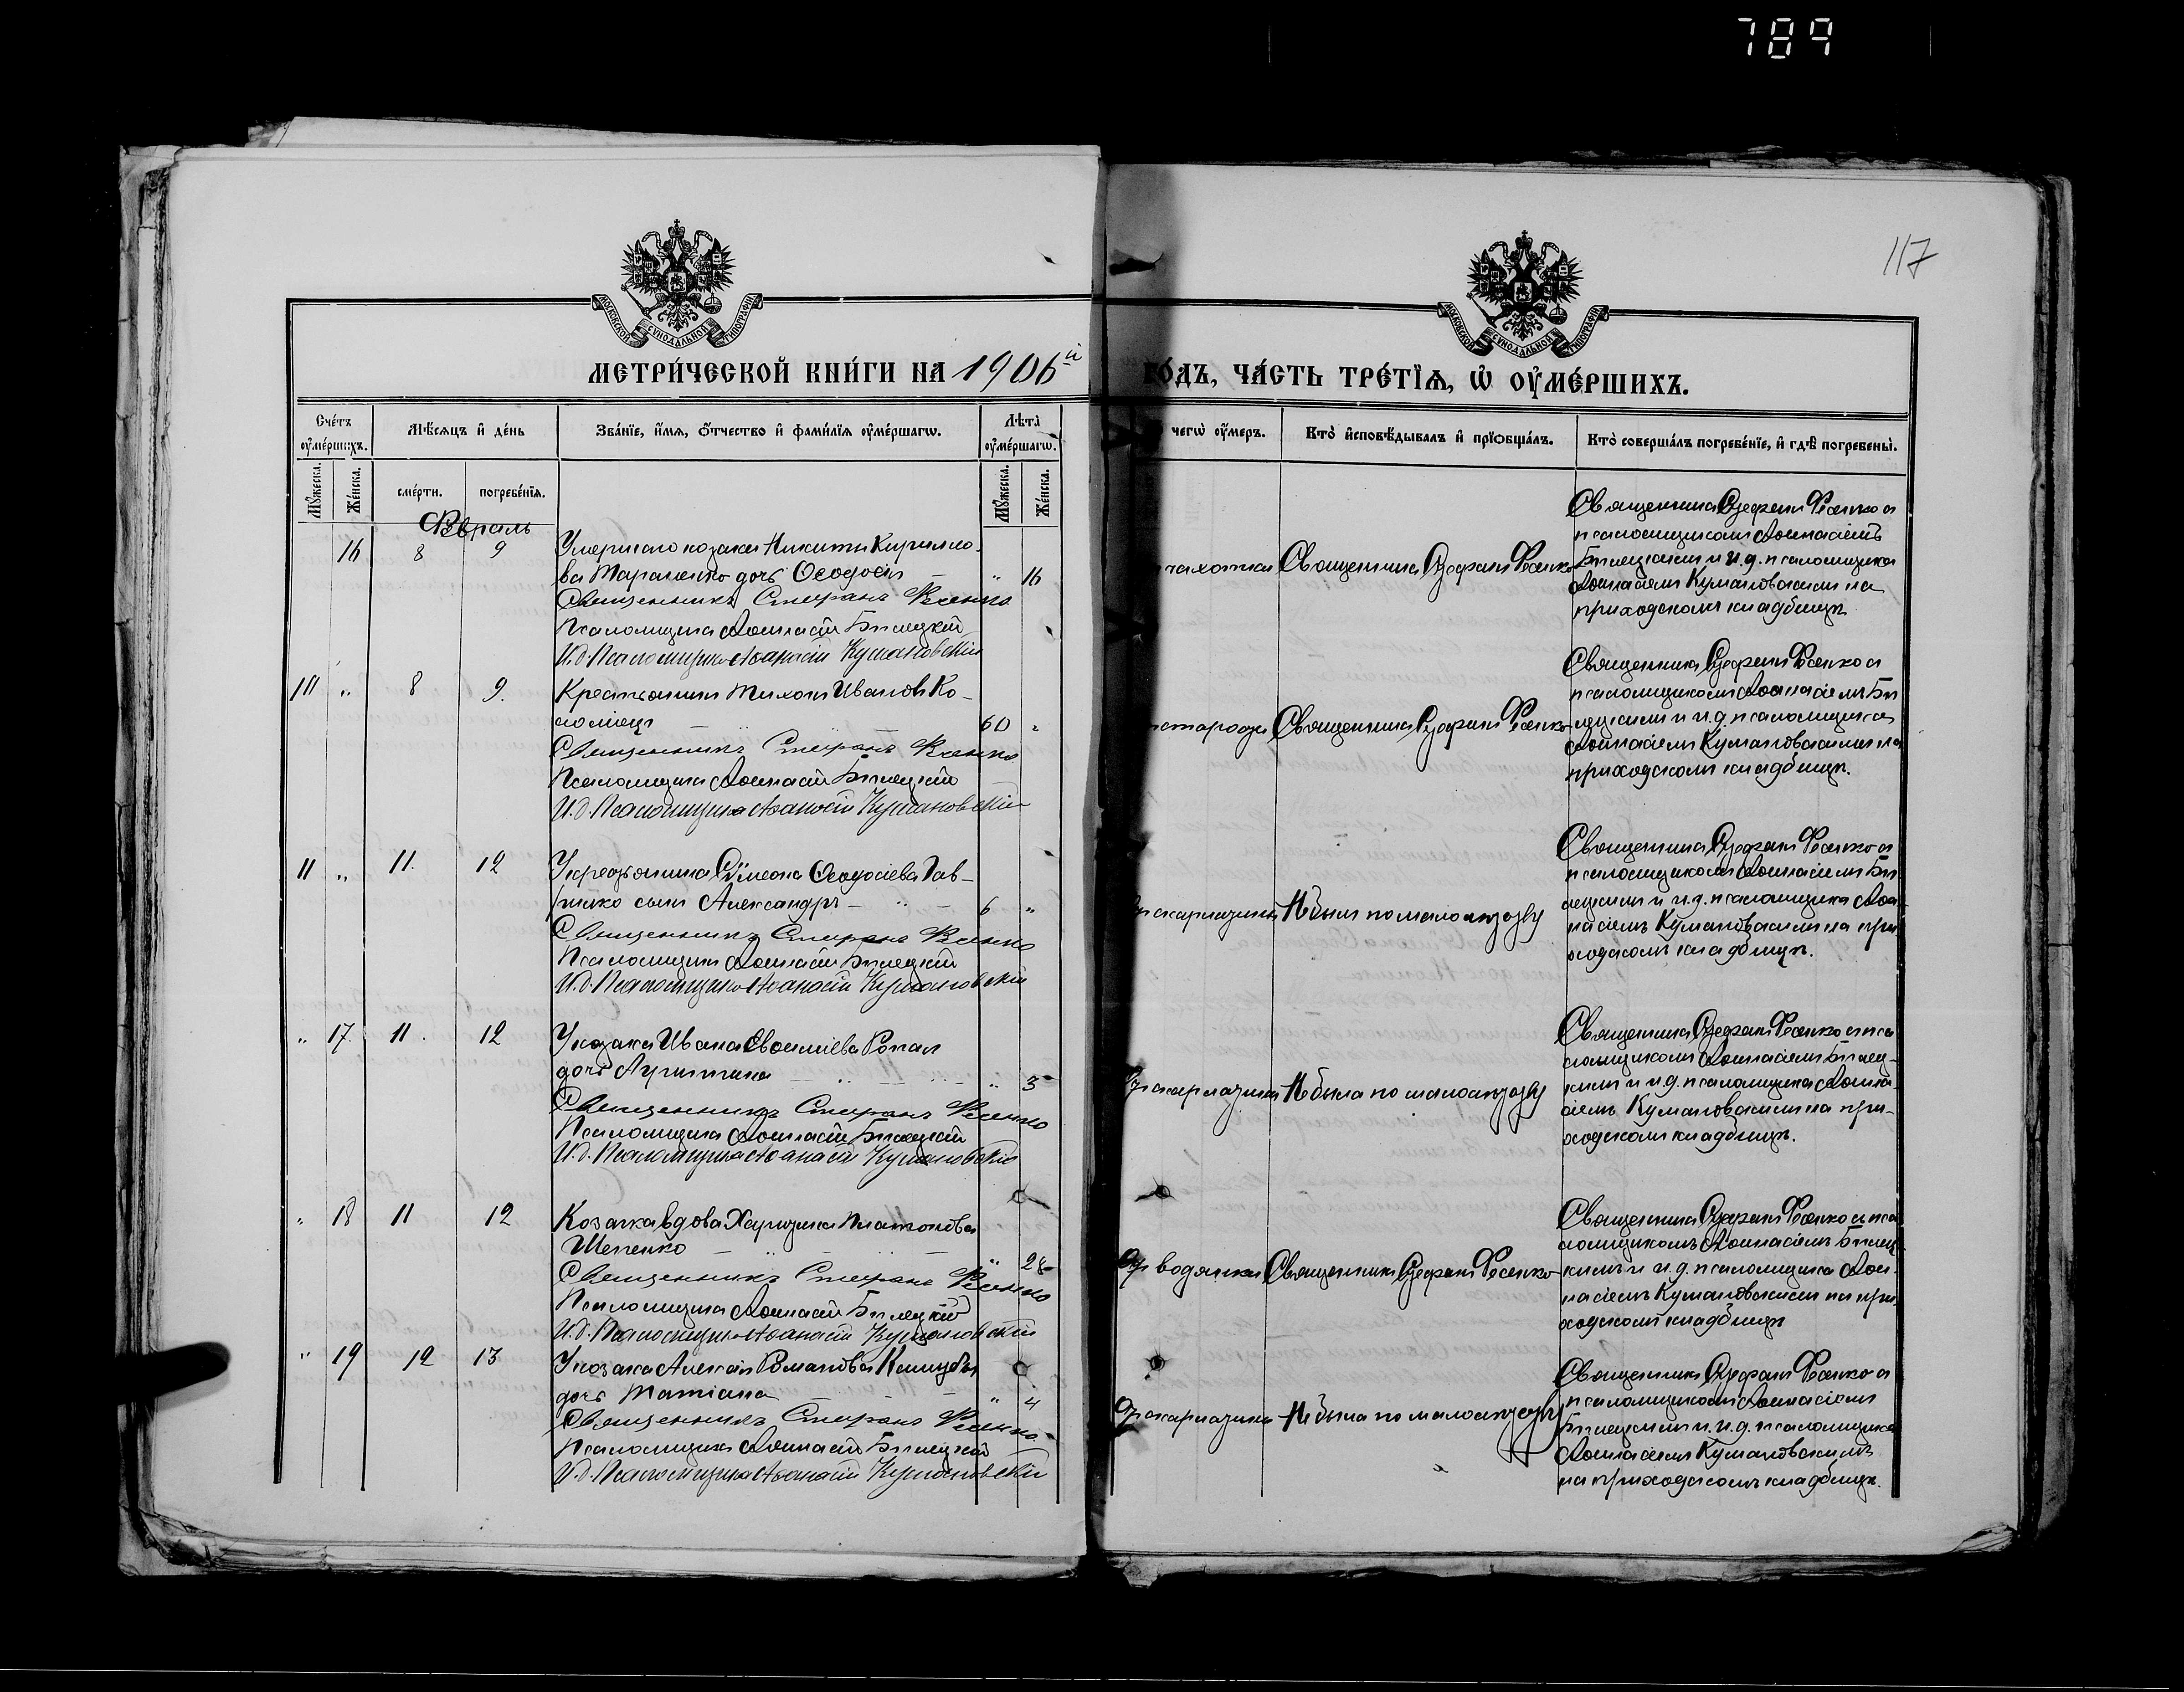 789
117
МОСКОВСКОЙ СѴНОДАЛЬНОЙ ТИПОГРАФІИ
МОСКОВСКОЙ СѴНОДАЛЬНОЙ ТИПОГРАФІИ
МЕТРИ́ЧЕСКОЙ КНИ́ГИ НА 1906й
ГО́ДЪ, ЧА́СТЬ ТРЕ́ТЇѦ, Ѡ ОУМЕ́РШИХЪ.
Сче́тъ оуме́ршихъ.
Мѣ́сѧцъ и де́нь
Зва́нїе, и́мѧ, о́тчество и фами́лїѧ оуме́ршагѡ.
Лѣта̀ оуме́ршагѡ.
чегѡ̀ оу́меръ.
Кто̀ исповѣ́дывалъ и прїѡбща́лъ.
Кто̀ соверша́лъ погребе́нїе, и гдѣ̀ погребены̀.
Мꙋ́жеска.
Же́нска.
сме́рти.
погребе́нїѧ.
Мꙋ́жеска.
Же́нска.
Февраль
16 8 9 Умершаго козака Никиты Кирилло-
ва Тараненко дочь Ѳеодосія " 16
Священникъ Стефанъ Фесенко
Псаломщикъ Аѳанасій Билецкій
И.д. Псаломщика Аѳанасій Кумановскій
чахотки
Священникъ Стефанъ Фесенко
Священникъ Стефанъ Фесенко съ
псаломщикомъ Аѳанасіемъ
Билецкимъ и и.д. псаломщика
Аѳанасіемъ Кумановскимъ на
приходскомъ кладбищѣ
10 " 8 9. Крестьянинъ Тихонъ Ивановъ Ко-
ломіецъ 60 "
Священникъ Стефанъ Фесенко
Псаломщикъ Аѳанасій Билецкій
И.д. Псаломщика Аѳанасій Кумановскій
старости
Священникъ Стефанъ Фесенко
Священникъ Стефанъ Фесенко съ
псаломщикомъ Аѳанасіемъ Би
лецкимъ и и.д. псаломщика
Аѳанасіемъ Кумановскимъ на
приходскомъ кладбищѣ.
11 " 11. 12 У крестьянина Сѵмеона Ѳеодосіева Гав-
рилко сынъ Александръ 6 "
Священникъ Стефанъ Фесенко
Псаломщикъ Аѳанасій Билецкій
И.д. Псаломщика Аѳанасій Кумановскій
скарлатины
Не былъ по малолѣтству
Священникъ Стефанъ Фесенко съ
псаломщикомъ Аѳанасіемъ Би
лецкимъ и и.д. псаломщика Аѳа
насіемъ Кумановскимъ на при
ходскомъ кладбищѣ.
" 17. 11. 12 У козака Ивана
дочь " 3
Священникъ Стефанъ Фесенко
Псаломщикъ Аѳанасій Билецкій
И.д. Псаломщика Аѳанасій Кумановскій
От скарлатины
Не была по малолѣтству
Священникъ Стефанъ Фесенко съ пса
ломщикомъ Аѳанасіемъ Билец-
кимъ и и.д. псаломщика Аѳана-
сіемъ Кумановскимъ на при-
ходскомъ кладбищѣ.
" 18 11 12 Козачка вдова Харитина Платонова
Шепенко " 28
Священникъ Стефанъ Фесенко
Псаломщикъ Аѳанасій Билецкій
И.д. Псаломщика Аѳанасій Кумановскій
От водянки
Священникъ Стефанъ Фесенко
Священникъ Стефанъ Фесенко съ пса
ломщикомъ Аѳанасіемъ Билец
кимъ и и.д. псаломщика Аѳа-
насіемъ Кумановскимъ на при
ходскомъ кладбищѣ
" 19 12 13 У козака Алексія Романова
дочь Татіана " 4
Священникъ Стефанъ Фесенко
Псаломщикъ Аѳанасій Билецкій
И.д. Псаломщика Аѳанасій Кумановскій
От скарлатины
Не была по малолѣтству
Священникъ Стефанъ Фесенко съ
псаломщикомъ Аѳанасіемъ
Билецкимъ и и.д. псаломщика
Аѳанасіемъ Кумановскимъ
на приходскомъ кладбищѣ.